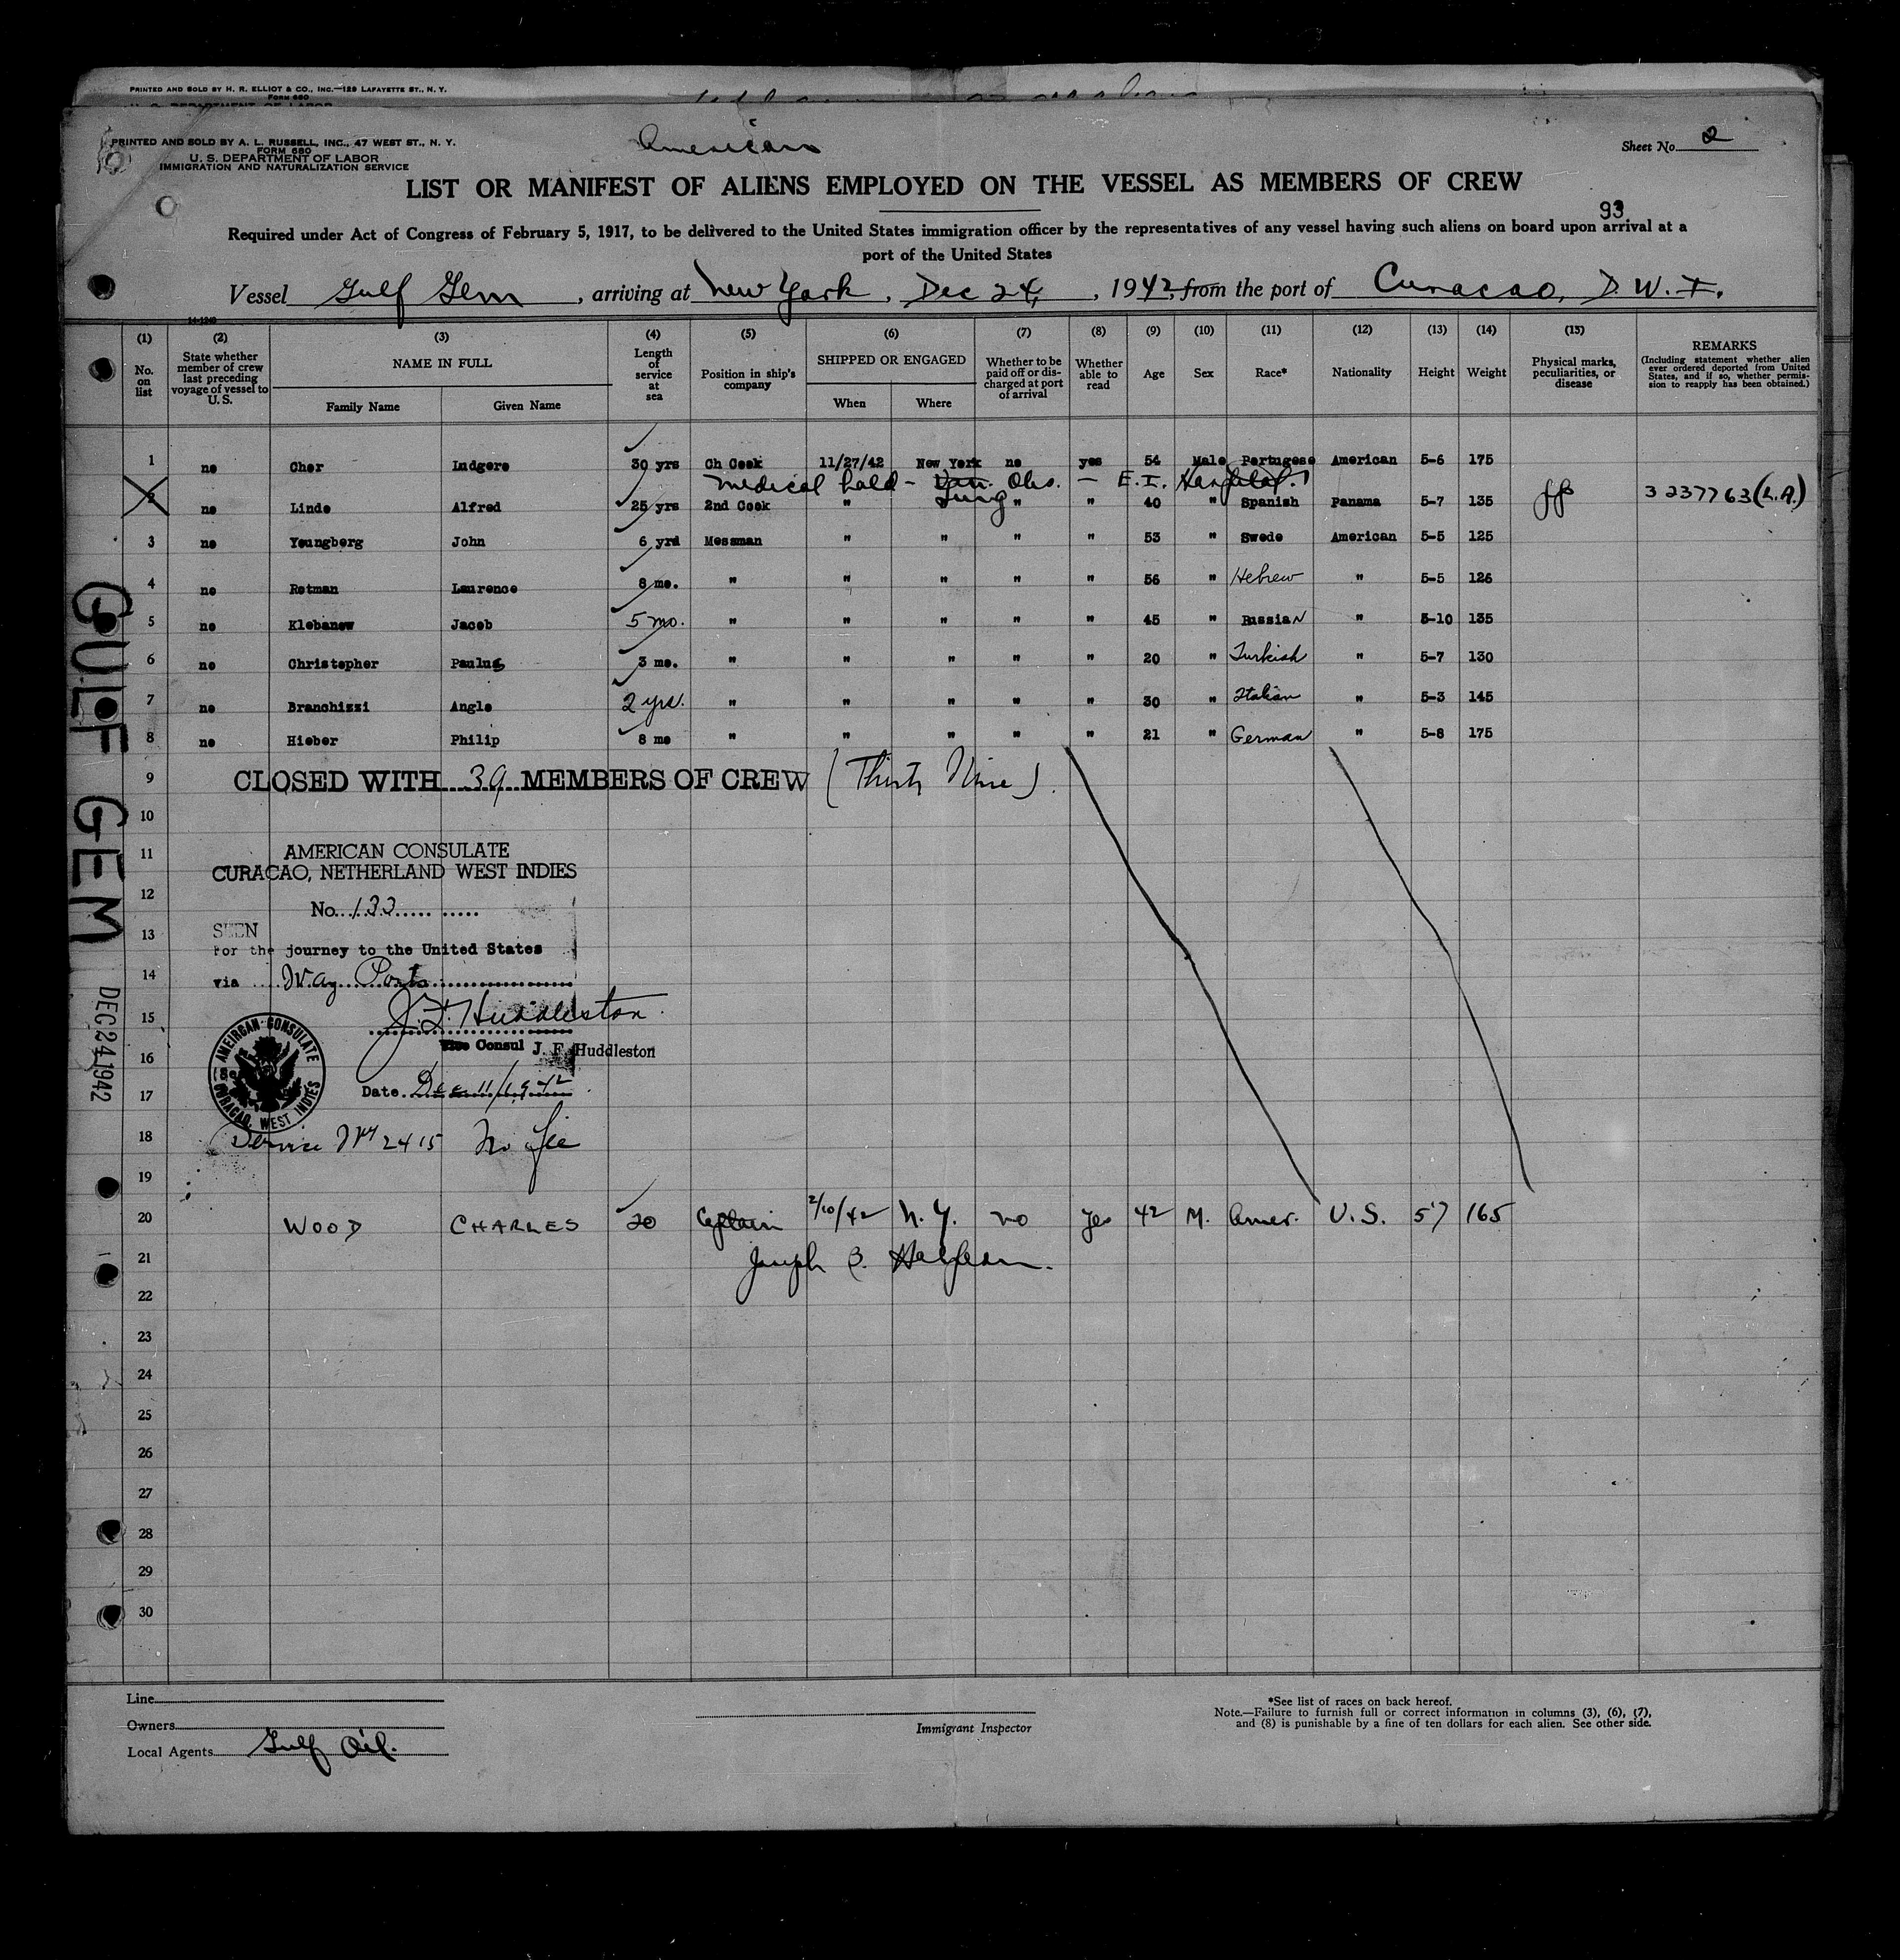 PRINTED AND SOLD BY H. R. ELLIOT & CO., INC.—129 LAFAYETTE ST., N. Y.
FORM 680
U. S. DEPARTMENT OF LABOR
PRINTED AND SOLD BY A. L. RUSSELL, INC., 47 WEST ST., N. Y.
FORM 680
U. S. DEPARTMENT OF LABOR
IMMIGRATION AND NATURALIZATION SERVICE
American
Sheet No. 2
LIST OR MANIFEST OF ALIENS EMPLOYED ON THE VESSEL AS MEMBERS OF CREW
93
Required under Act of Congress of February 5, 1917, to be delivered to the United States immigration officer by the representatives of any vessel having such aliens on board upon arrival at a
port of the United States
Vessel Gulf Gem, arriving at New York, Dec 24, 1942, from the port of Curacao, D. W. I.
14-1240
(1) No. on list
(2) State whether member of crew last preceding voyage of vessel to U. S.
(3) NAME IN FULL
Family Name Given Name
(4) Length of service at sea
(5) Position in ship's company
(6) SHIPPED OR ENGAGED
When Where
(7) Whether to be paid off or discharged at port of arrival
(8) Whether able to read
(9) Age
(10) Sex
(11) Race*
(12) Nationality
(13) Height
(14) Weight
(15) Physical marks, peculiarities, or disease
REMARKS
(Including statement whether alien ever ordered deported from United States, and if so, whether permission to reapply has been obtained.)
1 no Cher Indgero 30 yrs Ch Cook 11/27/42 New York no yes 54 Male Portugese American 5-6 175
Medical hold - Obs. - E. I. Hospital.
Lung
2 no Linde Alfred 25 yrs 2nd Cook " " " 40 " Spanish Panama 5-7 135 3237763 (L.A.)
3 no Youngberg John 6 yrs Messman " " " " 53 " Swede American 5-5 125
4 no Retman Laurence 8 mo. " " " " " 56 " Hebrew " 5-5 126
5 no Klebanow Jacob 5 mo. " " " " " 45 " Russian " 5-10 135
6 no Christopher Paulus 3 mo. " " " " " 20 " Turkish " 5-7 130
7 no Branchizzi Angle 2 yrs. " " " " " 30 " Italian " 5-3 145
8 no Hieber Philip 8 mo " " " " " 21 " German " 5-8 175
9 CLOSED WITH 39 MEMBERS OF CREW (Thirty Nine)
10
11 AMERICAN CONSULATE
CURACAO, NETHERLAND WEST INDIES
12 No. 133
13 SEEN
For the journey to the United States
14 via Way Ports
15 J. F. Huddleston
16 Vice Consul J. F. Huddleston
AMEIRCAN CONSULATE
CURACAO, WEST INDIES
17 Date Dec 11/1942
18 Service No 2415 No fee
19
20 WOOD CHARLES 20 Captain 2/10/42 N. Y. no yes 42 M. Amer. U. S. 57 165
21 Joseph B.
22
23
24
25
26
27
28
29
30
GULF GEM
DEC 24 1942
Line
Owners
Local Agents Gulf Oil.
Immigrant Inspector
*See list of races on back hereof.
Note.—Failure to furnish full or correct information in columns (3), (6), (7),
and (8) is punishable by a fine of ten dollars for each alien. See other side.